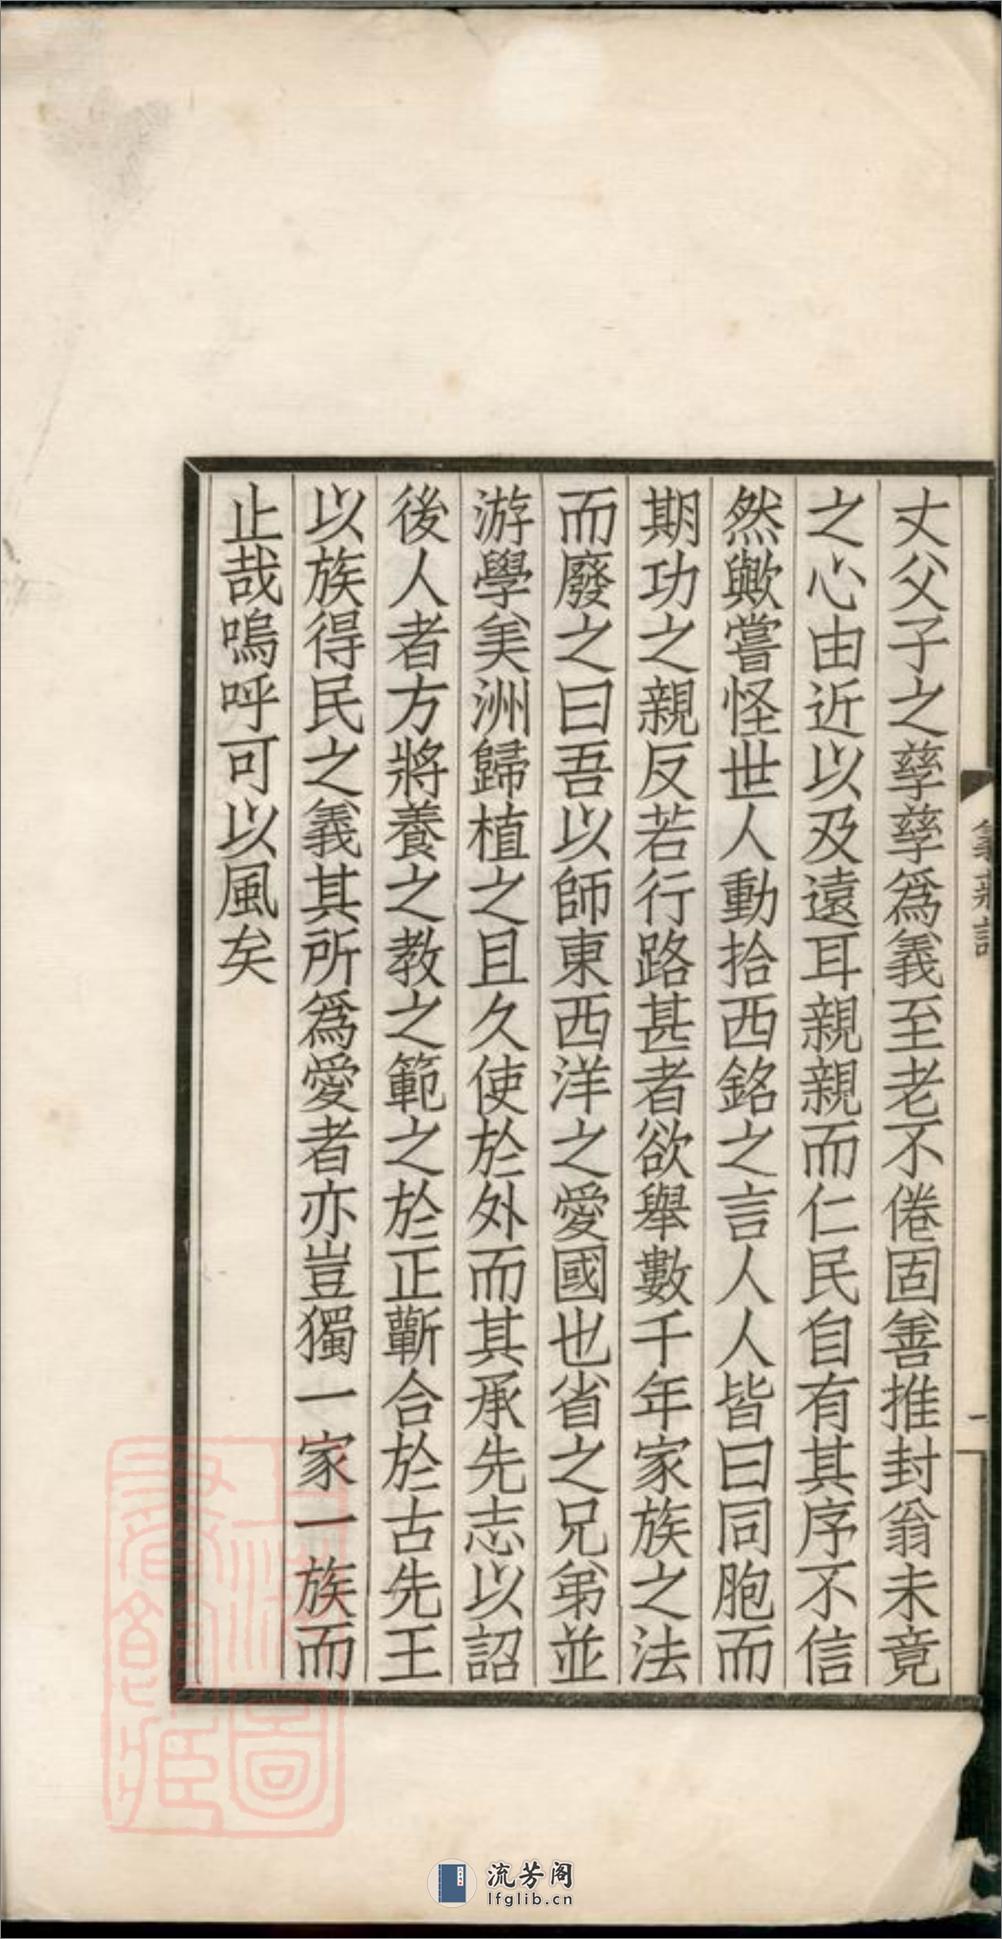 丈父子之孳孳爲義至老不倦固善推封翁未竟
之心由近以及遠耳親親而仁民自有其序不信
然歟嘗怪世人動拾西銘之言人人皆曰同胞而
期功之親反若行路甚者欲舉數千年家族之法
而廢之曰吾以師東西洋之愛國也省之兄弟並
游學美洲歸植之且久使於外而其承先志以詔
後人者方將養之教之範之於正蘄合於古先王
以族得民之義其所爲愛者亦豈獨一家一族而
止哉嗚呼可以風矣
一
流芳阁
lfglib.cn